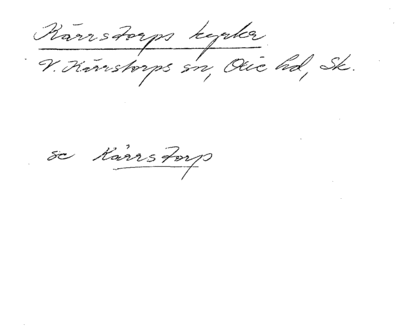 Kärrstorps kyrka
V. Kärrstorps sn, Oxie hd, Sk.
se Kärrstorp